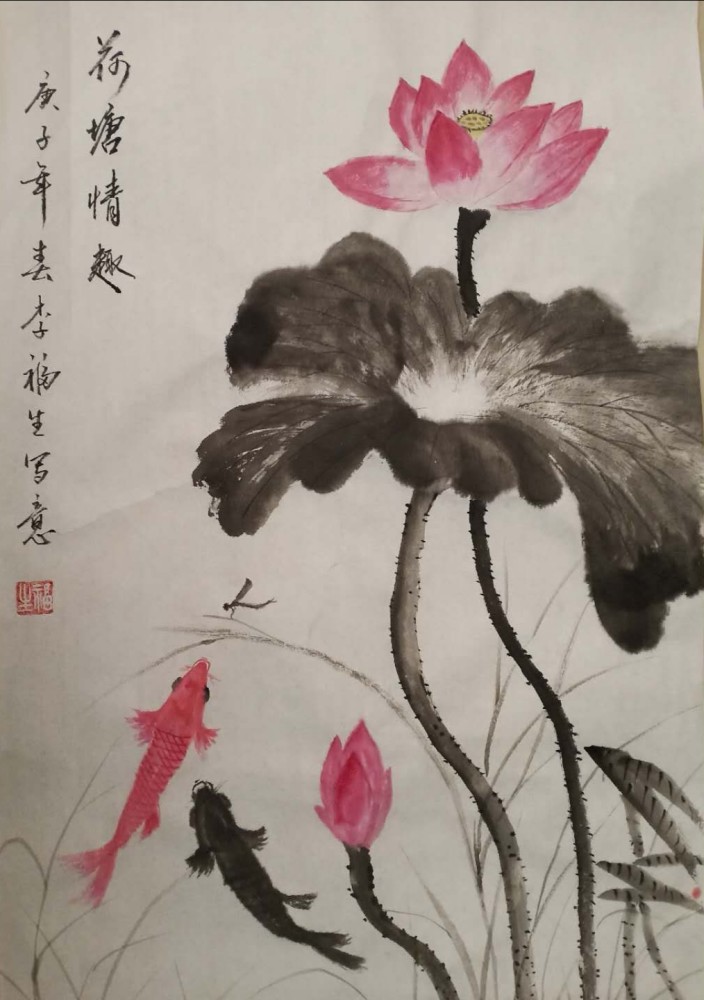 荷塘情趣
庚子年春李福生写意
福生